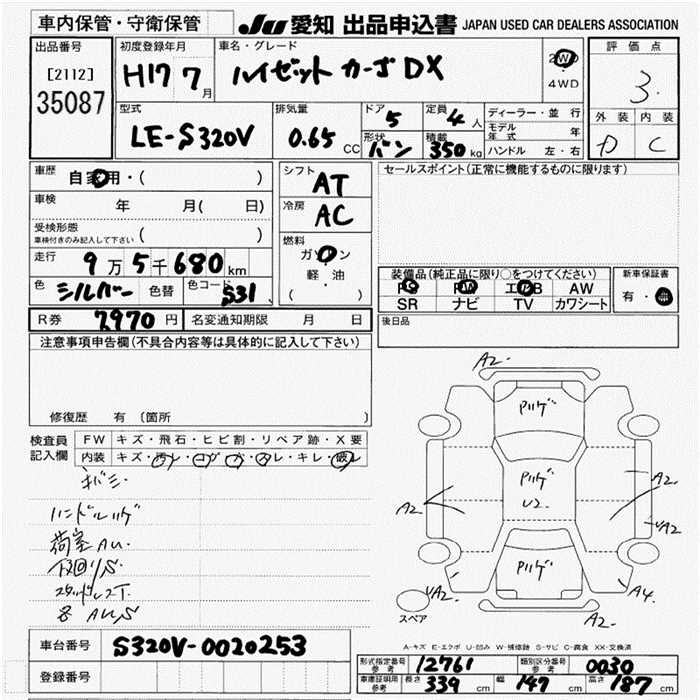 車内保管・守衛保管
JU 愛知 出品申込書 JAPAN USED CAR DEALERS ASSOCIATION
出品番号
[2112]
35087
初度登録年月
H17 7月
車名・グレード
ハイゼット カーゴ DX
2WD
4WD
評価点
3.
外装 内装
D C
型式
LE-S320V
排気量
0.65 CC
ドア 5
形状 バン
定員 4人
積載 350kg
ディーラー・並行
モデル年式 年
ハンドル 左・右
車歴
自家用・( )
車検 年 月( 日)
受検形態
車検付きのみ記入して下さい ( )
走行 9万5千680km
色 シルバー 色替 色コード S31
シフト
AT
冷房
AC
燃料
ガソリン
軽・油
( )
セールスポイント(正常に機能するものに限ります)
装備品(純正品に限り○をつけてください)
PS PW エアB AW
SR ナビ TV カワシート
新車保証書
有・無
R券 7970円 名変通知期限 月 日
後日品
注意事項申告欄(不具合内容等は具体的に記入して下さい)
修復歴 有 〔箇所 〕
検査員記入欄
FW キズ・飛石・ヒビ割・リペア跡・X要
内装 キズ・汚レ・コゲ・穴・スレ・キレ・破レ
ネバミ・
ハンドルハゲ
荷室AU・
下回リS・
スタッドレスT.
各AU,S
A2.
Pハゲ
Pハゲ
U2.
Pハゲ
A2.
A2.
A2
A2.
A4.
A2.
スペア
A-キズ E-エクボ U-凹み W-補修跡 S-サビ C-腐食 XX-交換済
車台番号 S320V-0020253
登録番号
形式指定番号 参考 12761 類別区分番号 参考 0030
車庫証明用 参考 長さ 339 cm 幅 147 cm 高さ 187 cm